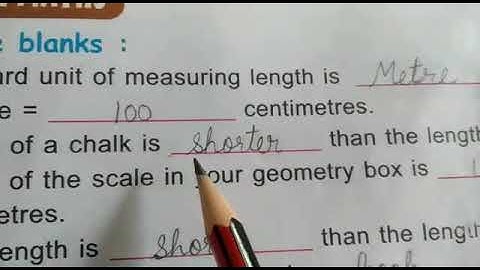 e blanks :
ard unit of measuring length is Metre
e = 100 centimetres.
of a chalk is shorter than the length
of the scale in your geometry box is 1
etres.
ength is than the length